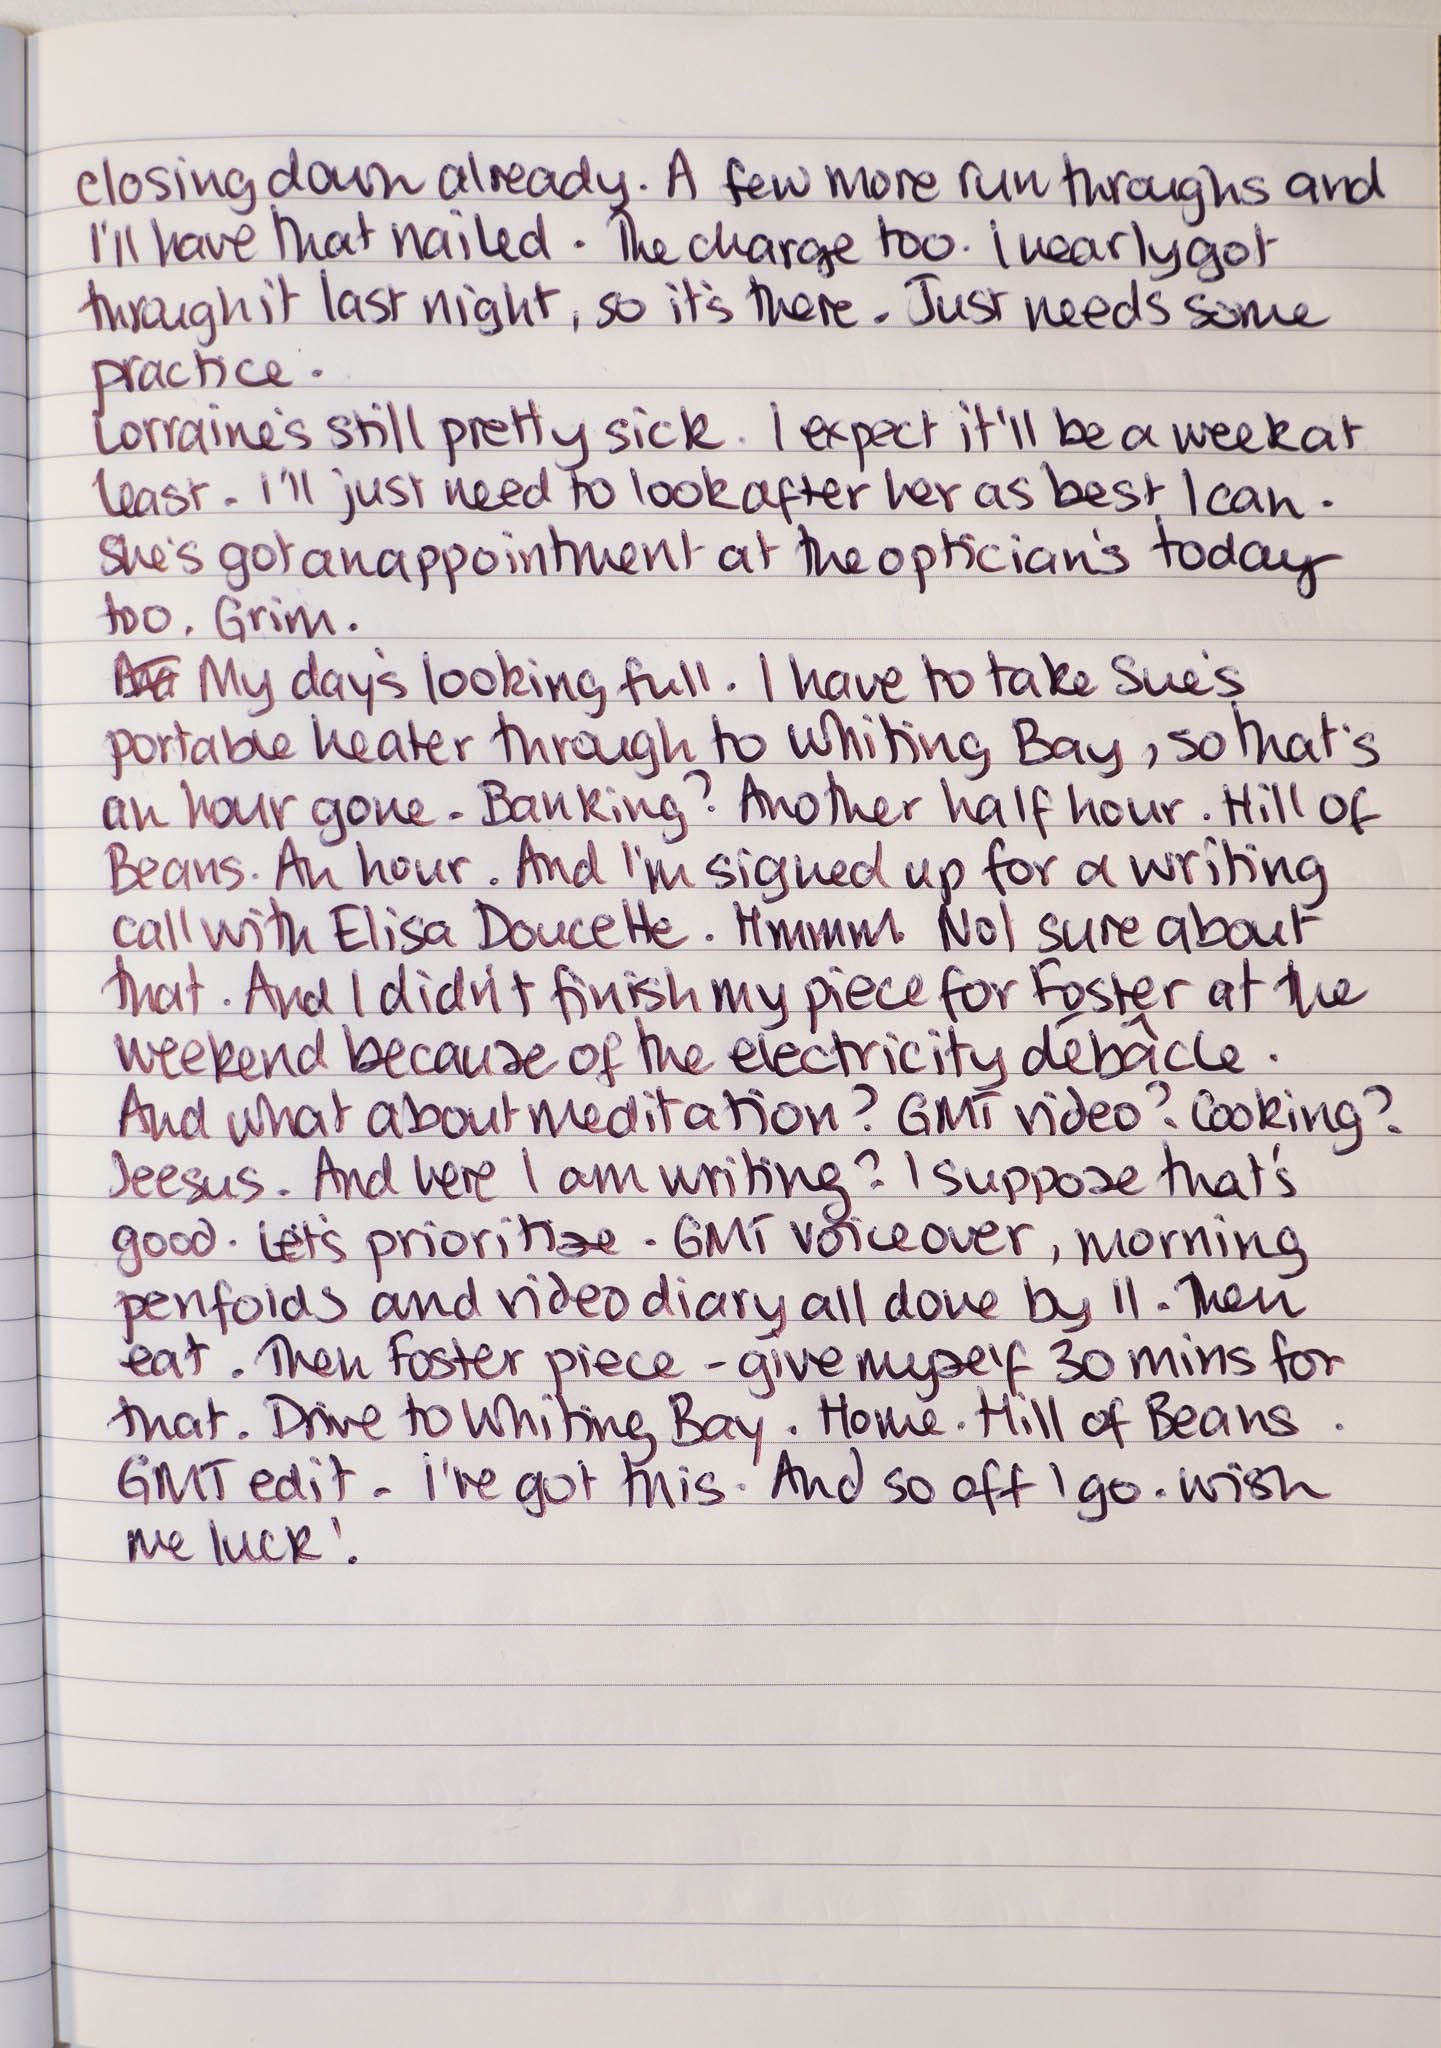 closing down already. A few more run throughs and
I'll have that nailed. The charge too. I nearly got
through it last night, so it's there. Just needs some
practice.
Lorraine's still pretty sick. I expect it'll be a week at
least. I'll just need to look after her as best I can.
She's got an appointment at the optician's today
too. Grim.
My day's looking full. I have to take Sue's
portable heater through to Whiting Bay, so that's
an hour gone. Banking? Another half hour. Hill of
Beans. An hour. And I'm signed up for a writing
call with Elisa Doucette. Hmmm. Not sure about
that. And I didn't finish my piece for Foster at the
weekend because of the electricity débâcle.
And what about meditation? GMT video? Cooking?
Jeesus. And here I am writing? I suppose that's
good. Let's prioritize. GMT voiceover, morning
penfolds and video diary all done by 11. Then
eat. Then Foster piece - give myself 30 mins for
that. Drive to Whiting Bay. Home. Hill of Beans.
GMT edit. I've got this. And so off I go. Wish
me luck!